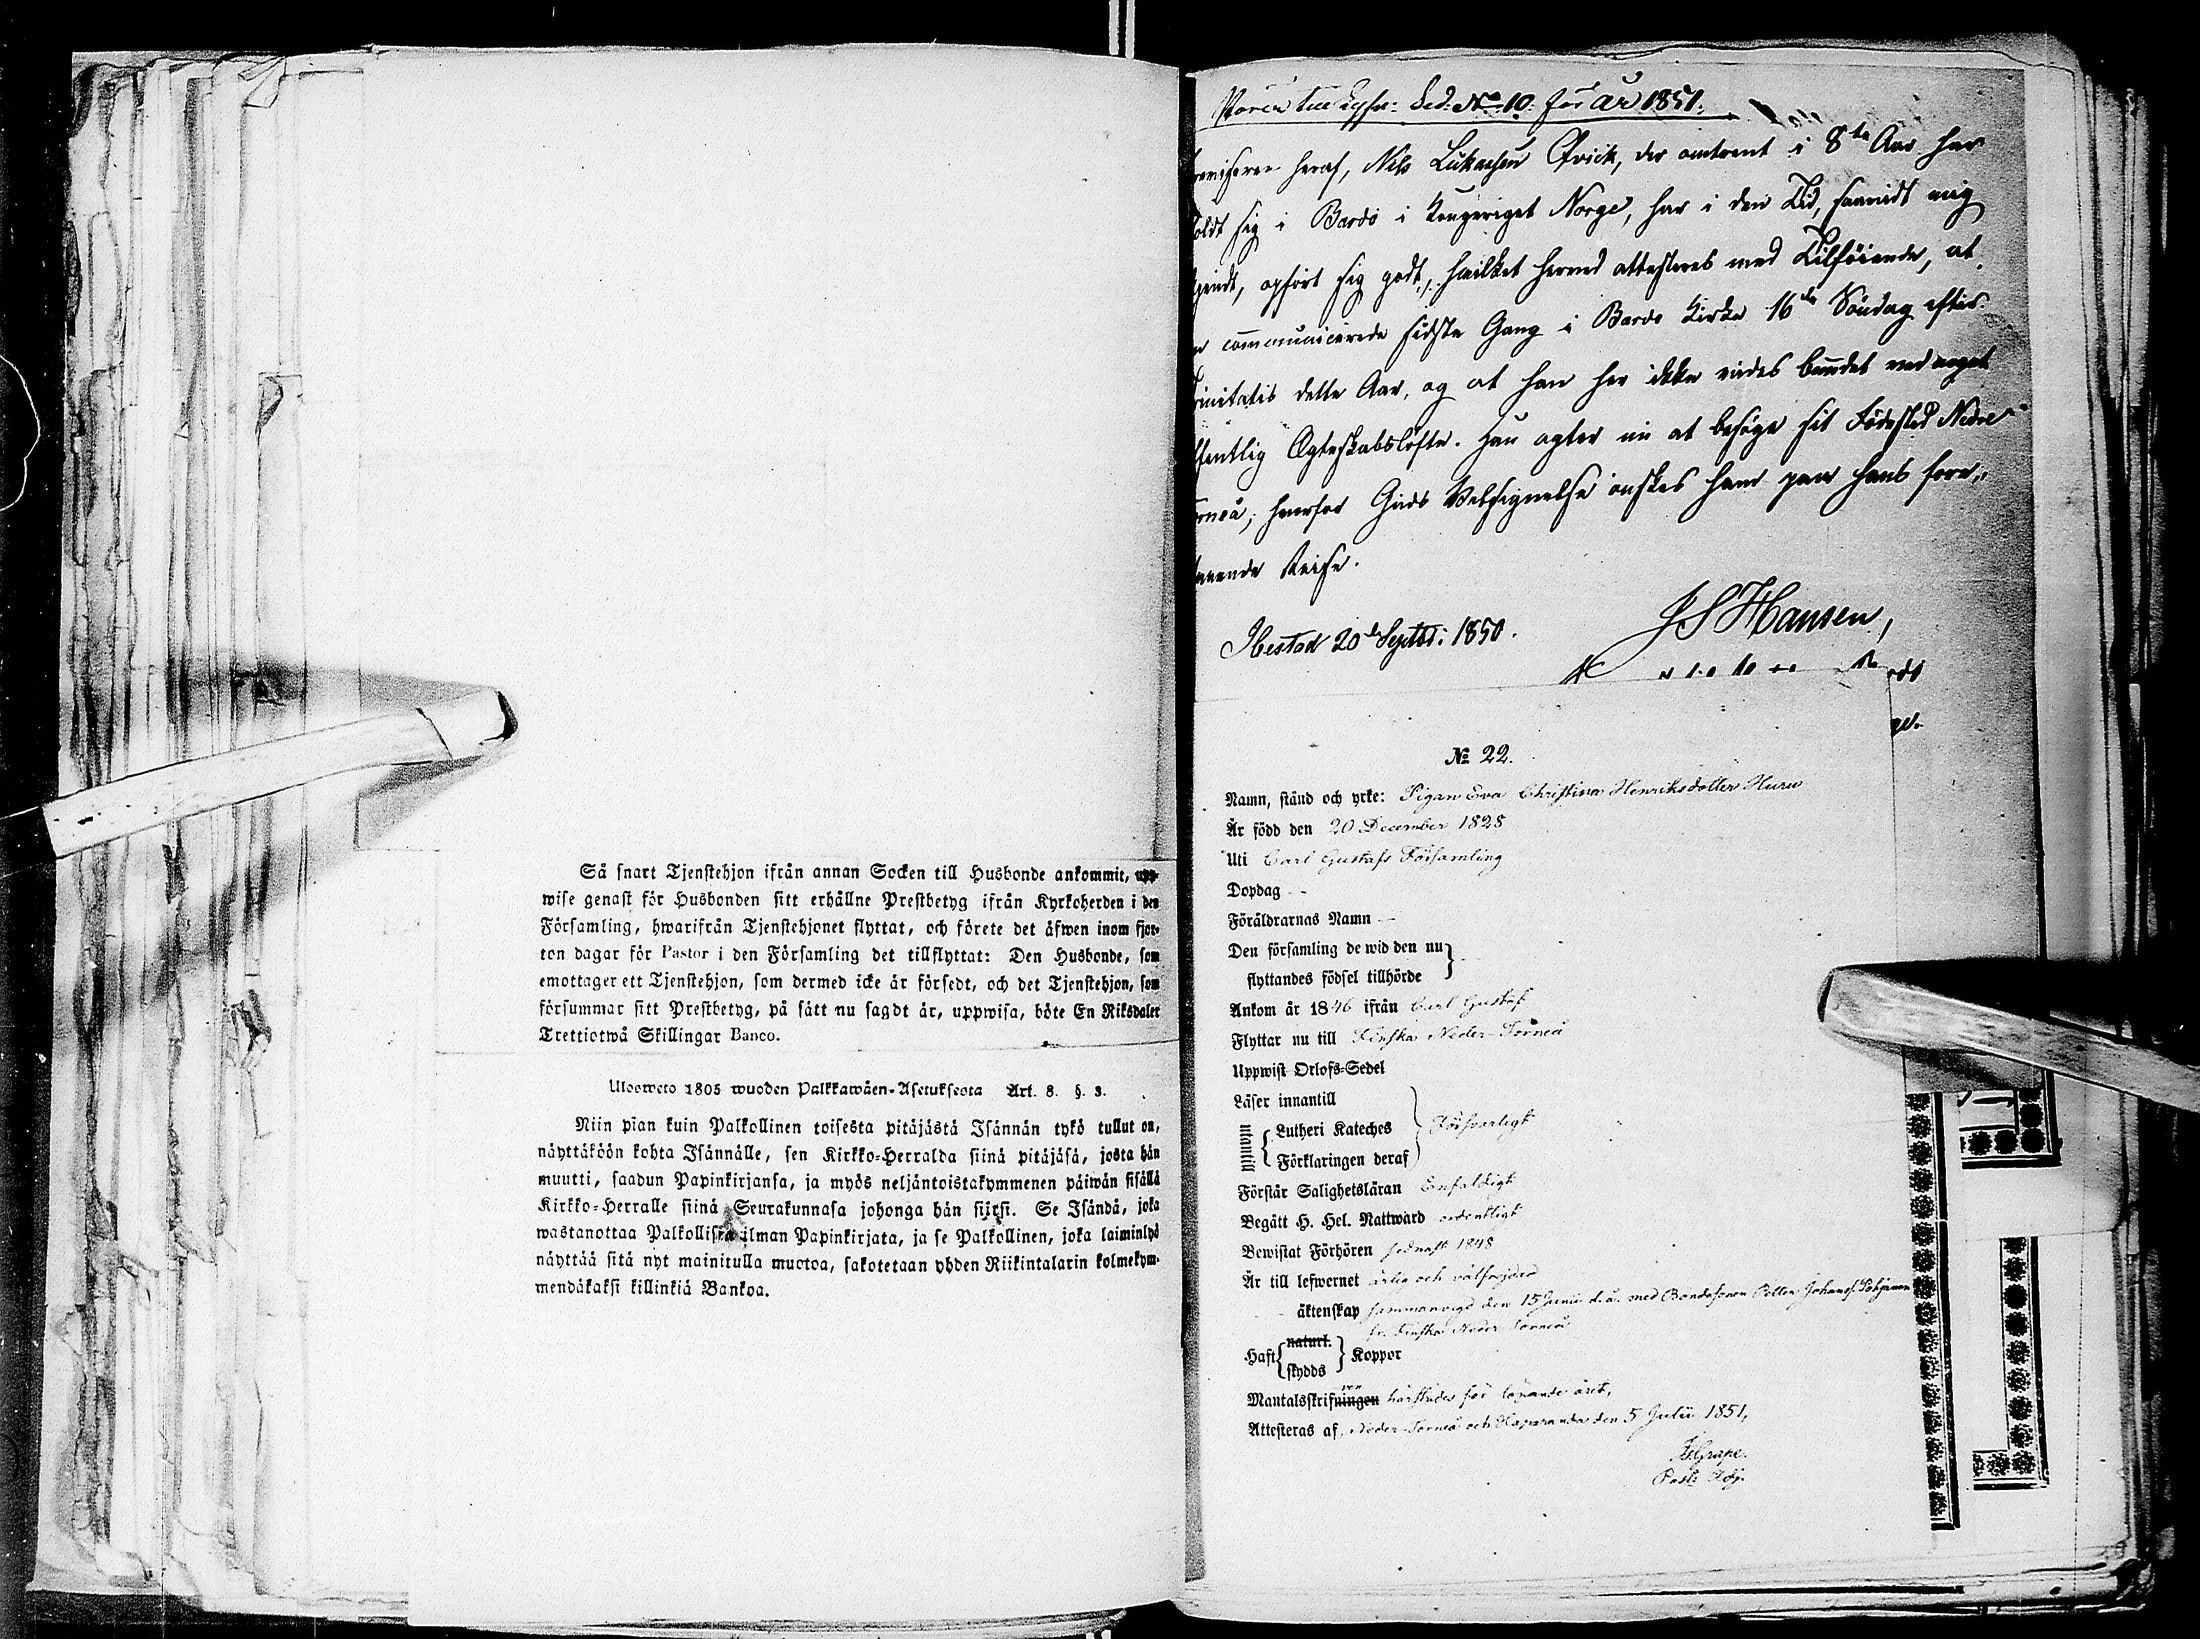 Så snart Tjenstehjon ifrån annan Socken till Husbonde ankommit, upp-
wise genast för Husbonden sitt erhållne Prestbetyg ifrån Kyrkoherden i den
Församling, hwarifrån Tjenstehjonet flyttat, och förete det äfwen inom fjor-
ton dagar för Pastor i den Församling det tillflyttat: Den Husbonde, som
emottager ett Tjenstehjon, som dermed icke är försedt, och det Tjenstehjon, som
försummar sitt Prestbetyg, på sätt nu sagdt är, uppwisa, böte En Riksdaler
Trettiotwå Skillingar Banco.
Uloosweto 1805 wuoden Palkkawäen-Asetuksesta Art. 8. §. 3.
Niin pian kuin Palkollinen toisesta pitäjästä Isännän tykö tullut on,
näyttäköön kohta Isännälle, sen Kirkko-Herralda siinä pitäjäsä, josta hän
muutti, saadun Papinkirjansa, ja myös neljäntoistakymmenen päiwän sisällä
Kirkko-Herralle siinä Seurakunnasa johonga hän siirsi. Se Isändä, joka
wastanottaa Palkollisen ilman Papinkirjata, ja se Palkollinen, joka laiminlyö
näyttää sitä nyt mainitulla muotoa, sakotetaan yhden Riikintalarin kolmekym-
mendäkaksi killinkiä Bankoa.
Sed: No 10. för år 1851.
heraf, Nils Lukassen Qvick, der omtrent i 8te Aar har
holdt sig i Bardo i Kongeriget Norge, har i den Tid, saavidt mig
bekjendt, opført sig godt, hvilket herved attesteres med Tilføiende, at
han communicerede sidste Gang i Bardo Kirke 16de Søndag efter
Trinitatis dette Aar, og at han her ikke vides bundet ved noget
offentlig Ægteskabsløfte. Han agter nu at besøge sit Fødested Nedre
Torneå; hvorfor Guds Velsignelse ønskes ham paa hans fore-
havende Reise.
Ibestad 20de Septbr: 1850.
J S Hansen,
No 22.
Namn, stånd och yrke: Pigan Eva Christina Henriksdotter Huru
Är född den 20 December 1828
Uti Carl Gustafs Församling
Dopdag -
Föräldrarnas Namn -
Den församling de wid den nu
flyttandes födsel tillhörde
Ankom år 1846 ifrån Carl Gustaf
Flyttar nu till Finska Neder-Torneå
Uppwist Orlofs-Sedel
Läser innantill
utantill Lutheri Kateches Försvarligt
Förklaringen deraf
Förstår Salighetsläran Enfaldigt
Begått H. Hel. Nattward ordentligt
Bewistat Förhören sednast 1848
Är till lefwernet ärlig och välfrejdad
äktenskap sammanvigd den 15 Junii d.å. med Bondesonen Petter Johansson
fr. Finska Neder Torneå
Haft naturl. skydds Koppor
Mantalsskrifningen ven härstädes för löpande året,
Attesteras af, Neder-Torneå och Haparanda den 5 Julii 1851,
Is. Grape.
Past: Adj.